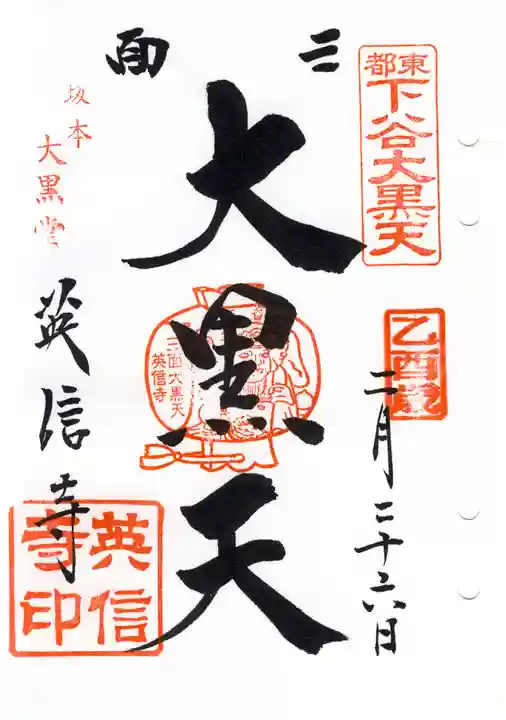 東都
下谷大黒天
乙酉歳
二月二十六日
三面
大黒天
三面大黒天
英信寺
坂本
大黒堂
英信寺
英信寺印